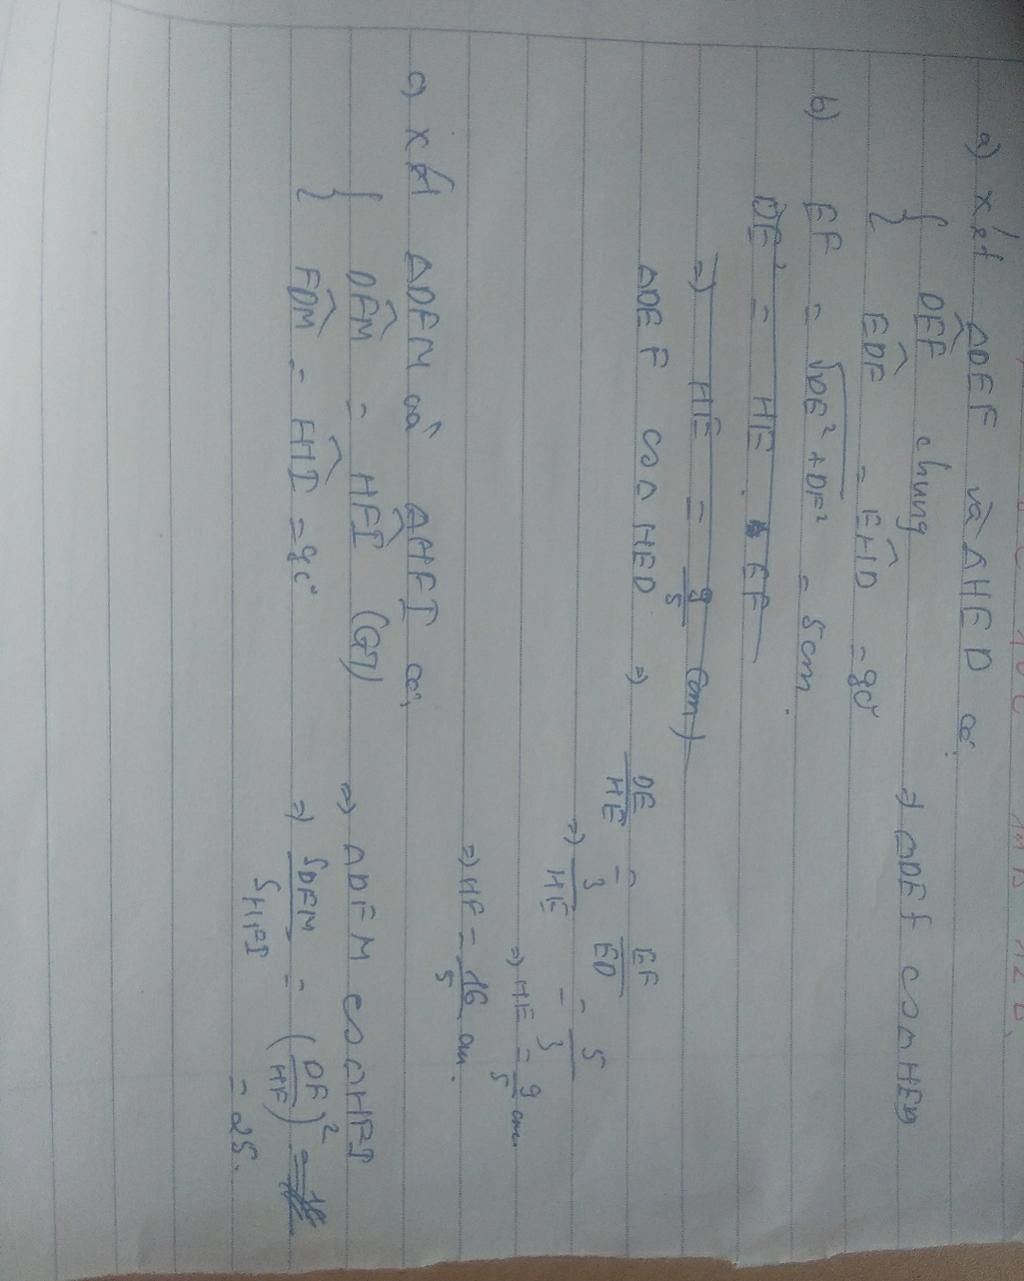 a) xét ΔDEF và ΔHED có:
{ DEF̂ chung
EDF̂ = EHD̂ = 90° ⇒ ΔDEF ∽ ΔHED
b) EF = √DE² + DF² = 5cm.
DE² = HE . EF
⇒ HE = 9/5 (cm)
ΔDEF ∽ ΔHED ⇒ DE/HE = EF/ED = 5/3
⇒ 3/HE = 5/3
⇒ HE = 9/5 cm.
⇒ HF = 16/5 cm.
c) xét ΔDFM và ΔHFI có,
{ DFM̂ = HFÎ (GT) ⇒ ΔDFM ∽ ΔHFI
FDM̂ = FHÎ = 90° ⇒ S DFM / S HFI = (DF/HF)²
= 25.